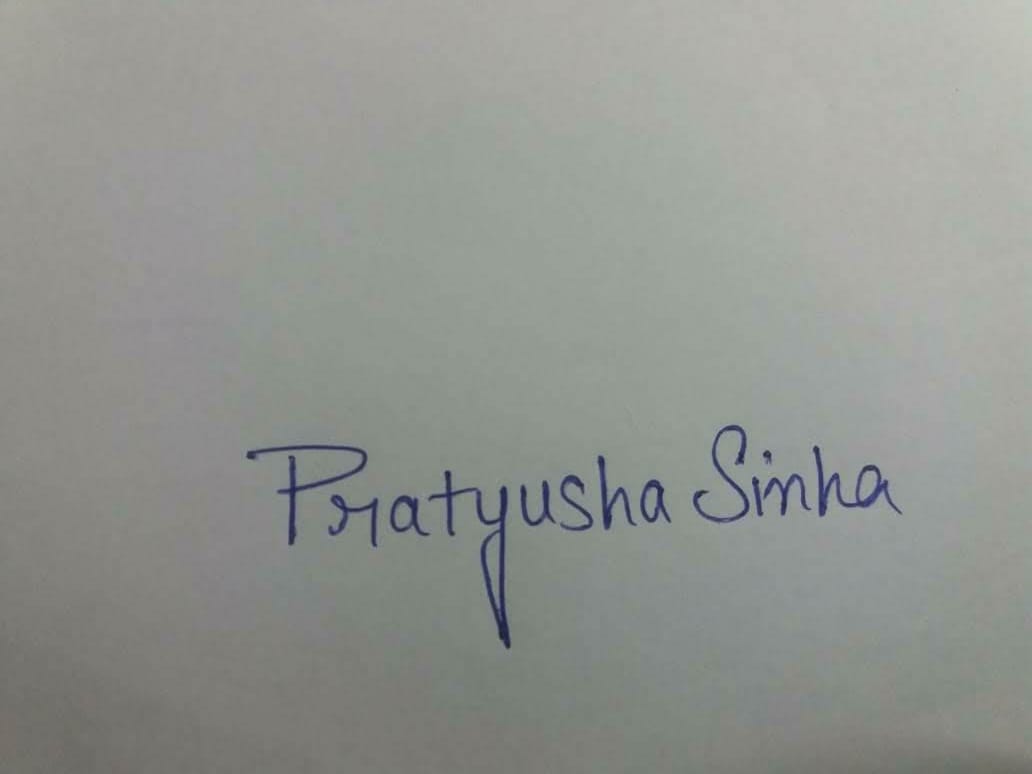 Pratyusha Sinha